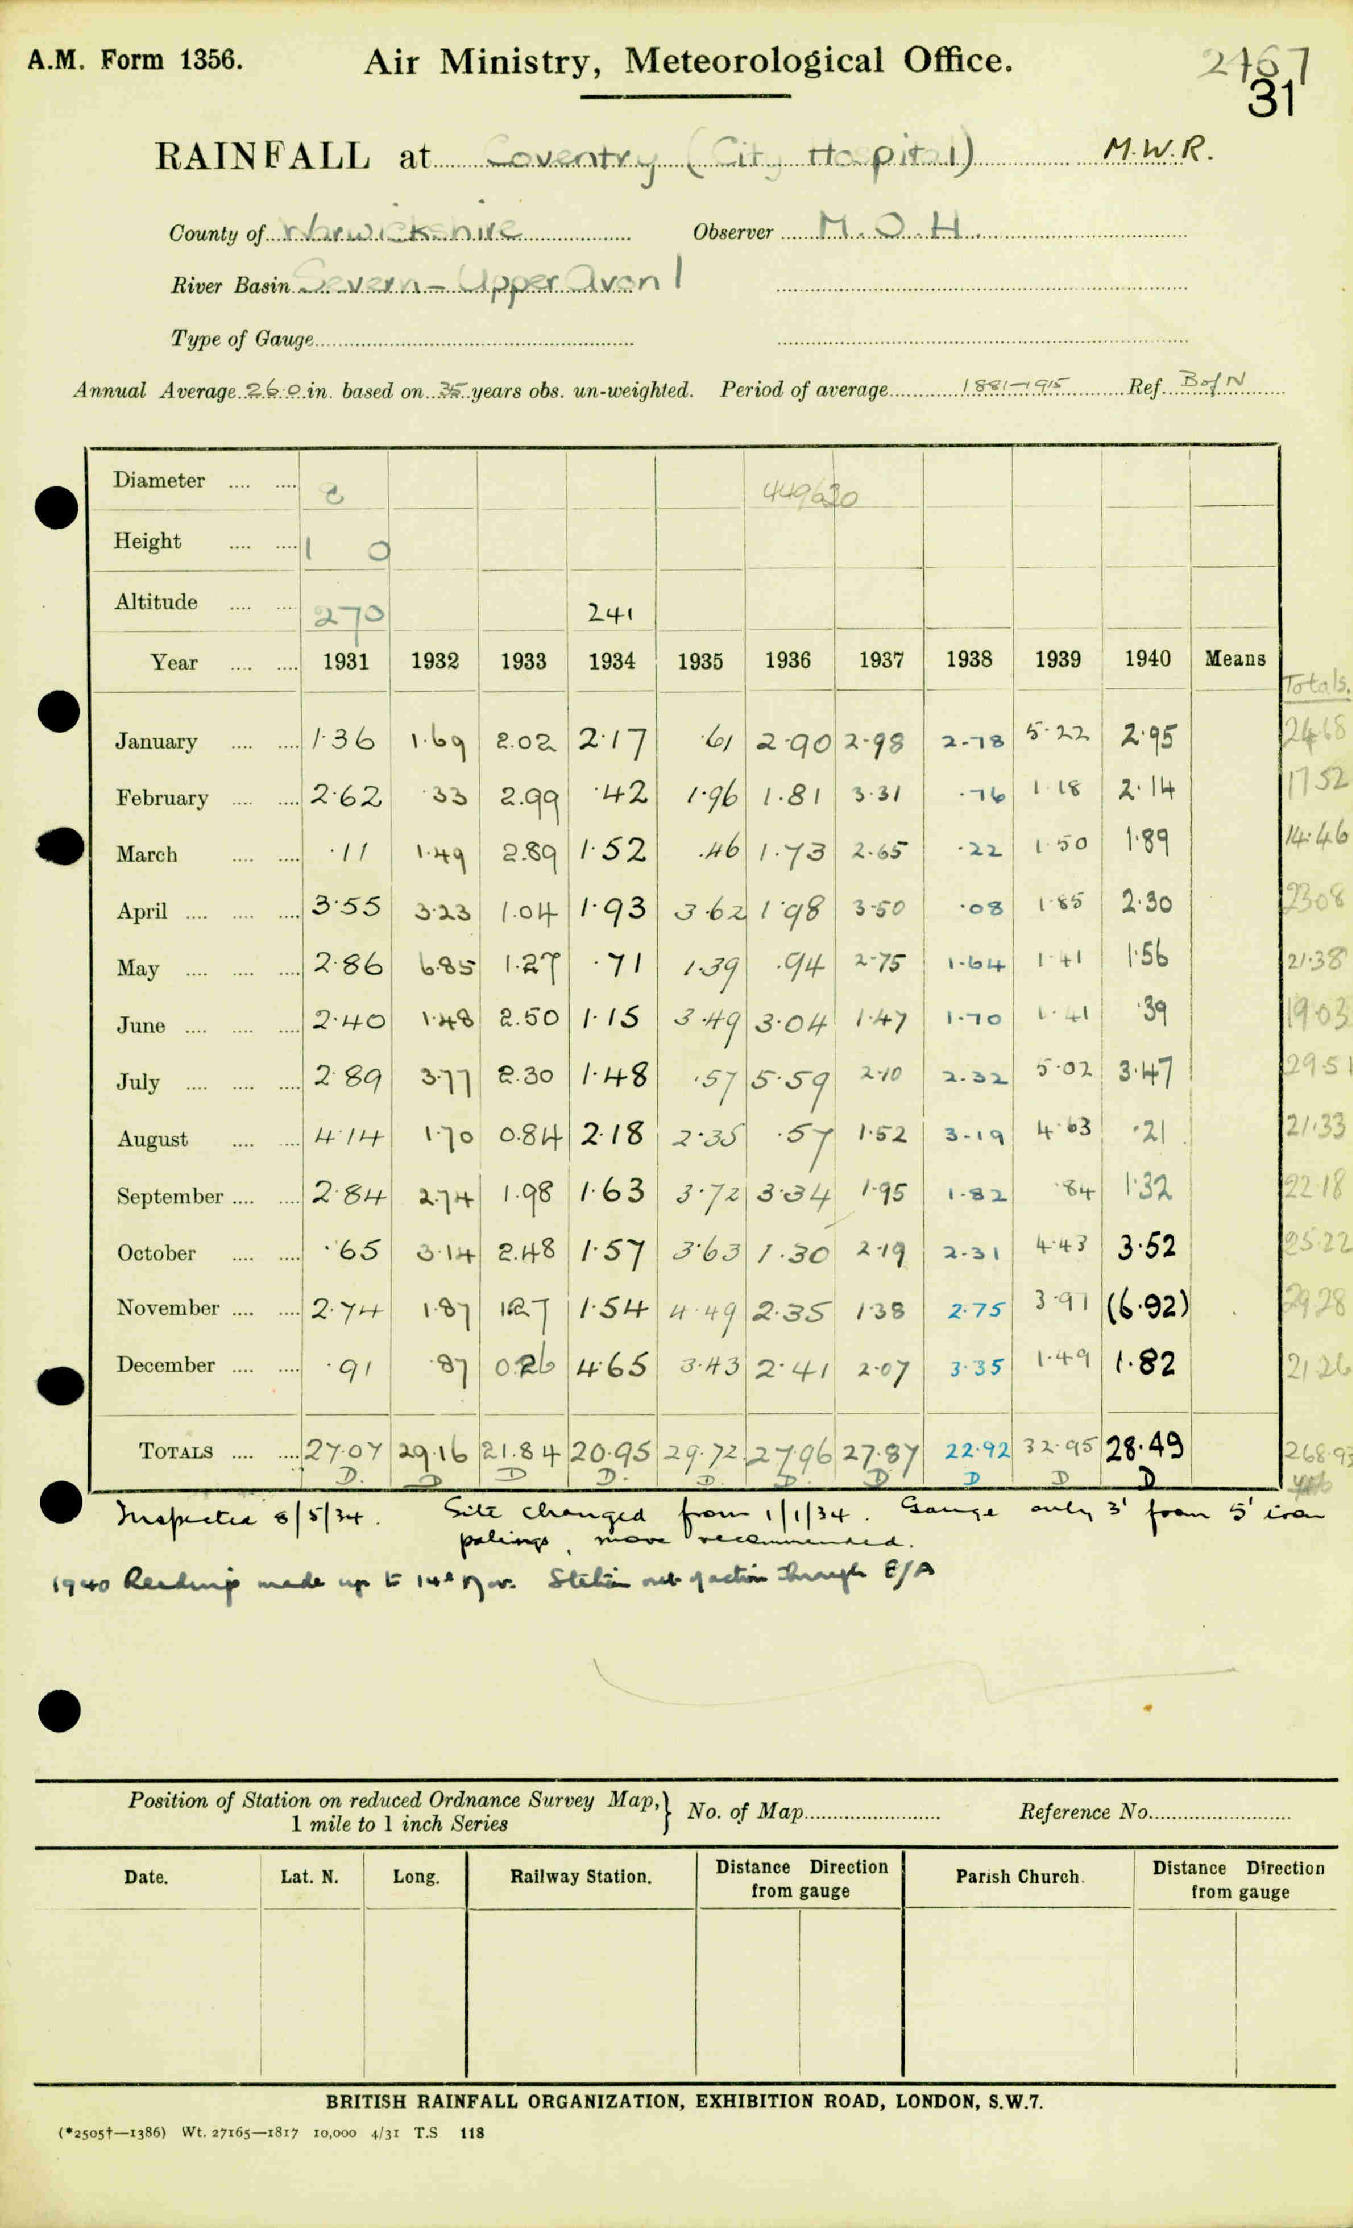 A.M. Form 1356. Air Ministry, Meteorological Office. 2467
31
RAINFALL at Coventry (City Hospital) M.W.R.
County of Warwickshire Observer M.O.H.
River Basin Severn - Upper Avon 1
Type of Gauge
Annual Average 26.0 in. based on 35 years obs. un-weighted. Period of average 1881-1915 Ref. B of N
Diameter 8 449620
Height 1 0
Altitude 270 241
Year 1931 1932 1933 1934 1935 1936 1937 1938 1939 1940 Means Totals.
January 1.36 1.69 2.02 2.17 .61 2.90 2.98 2.78 5.22 2.95 24.68
February 2.62 .33 2.99 .42 1.96 1.81 3.31 .76 1.18 2.14 17.52
March .11 1.49 2.89 1.52 .46 1.73 2.65 .22 1.50 1.89 14.46
April 3.55 3.23 1.04 1.93 3.62 1.98 3.50 .08 1.85 2.30 23.08
May 2.86 6.85 1.27 .71 1.39 .94 2.75 1.64 1.41 1.56 21.38
June 2.40 1.48 2.50 1.15 3.49 3.04 1.47 1.70 1.41 .39 19.03
July 2.89 3.77 2.30 1.48 .57 5.59 2.10 2.32 5.02 3.47 29.51
August 4.14 1.70 0.84 2.18 2.35 .57 1.52 3.19 4.63 .21 21.33
September 2.84 2.74 1.98 1.63 3.72 3.34 1.95 1.82 .84 1.32 22.18
October .65 3.14 2.48 1.57 3.63 1.30 2.19 2.31 4.43 3.52 25.22
November 2.74 1.87 1.27 1.54 4.49 2.35 1.38 2.75 3.97 (6.92) 29.28
December .91 .87 0.26 4.65 3.43 2.41 2.07 3.35 1.49 1.82 21.26
TOTALS 27.07 29.16 21.84 20.95 29.72 27.96 27.87 22.92 32.95 28.49 268.93
D. D D D. D. D. D D D D
Inspected 8/5/34. Site changed from 1/1/34. Gauge only 3' from 5' iron
palings, move recommended.
1940 Readings made up to 14th Nov. Station out of action through E/A
Position of Station on reduced Ordnance Survey Map, } No. of Map Reference No.
1 mile to 1 inch Series
Date. Lat. N. Long. Railway Station. Distance Direction from gauge Parish Church. Distance Direction from gauge
BRITISH RAINFALL ORGANIZATION, EXHIBITION ROAD, LONDON, S.W.7.
(*2505†—1386) Wt. 27165—1817 10,000 4/31 T.S 118